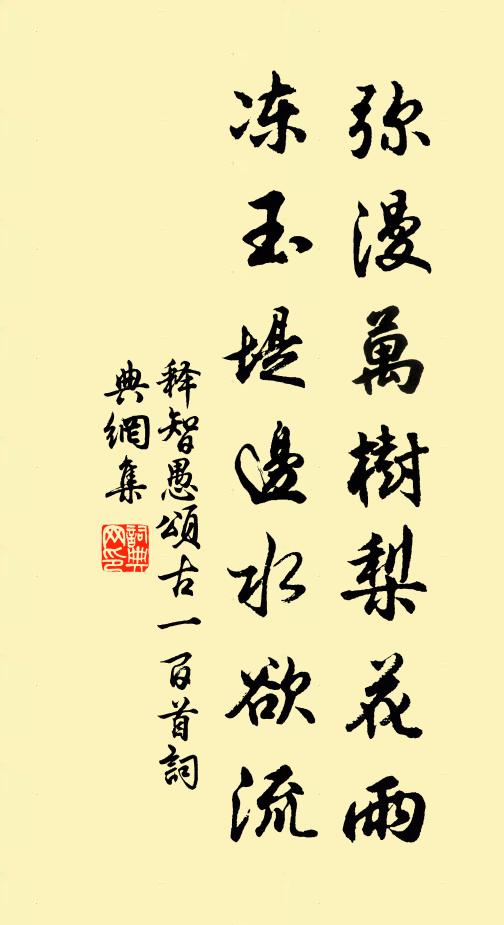 弥漫萬樹梨花雨
冻玉堤邊水欲流
释智愚頌古一百首詞
典網集
詞典网印